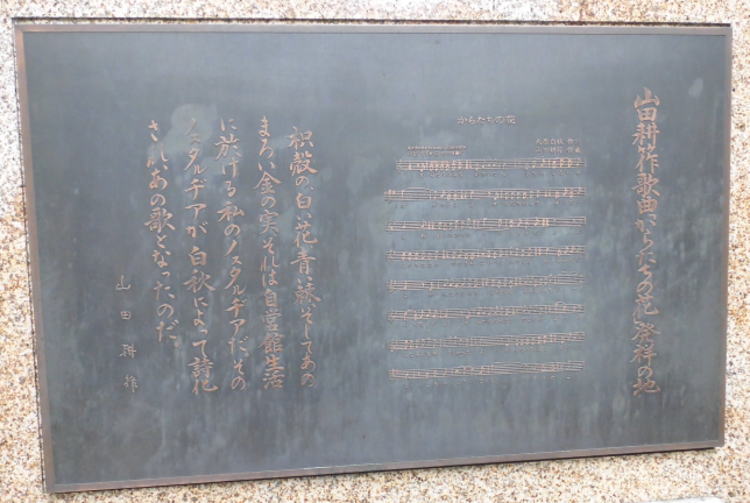 山田耕作歌曲「からたちの花」発祥の地
からたちの花
北原白秋 作
山田耕筰 作曲
枳殻の、白い花、青い棘、そしてあの
まろい金の実、それは自営館生活
に於ける私のノスタルヂアだ。その
ノスタルヂアが白秋によって詩化
され、あの歌となったのだ。
山田耕筰